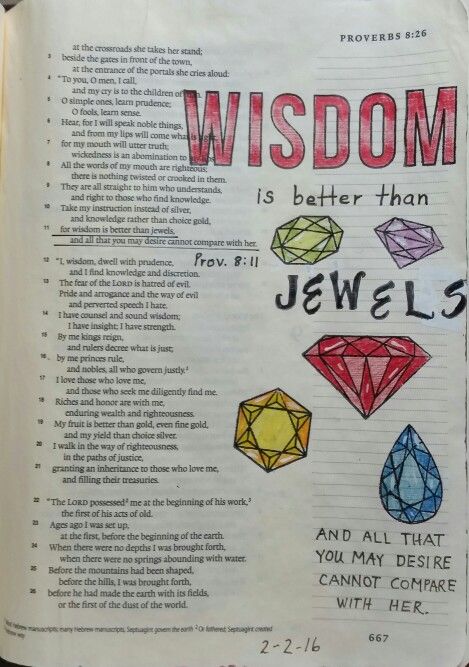 PROVERBS 8:26
at the crossroads she takes her stand;
3 beside the gates in front of the town,
at the entrance of the portals she cries aloud:
4 "To you, O men, I call,
and my cry is to the children of
5 O simple ones, learn prudence;
O fools, learn sense.
6 Hear, for I will speak noble things,
and from my lips will come what is
7 for my mouth will utter truth;
wickedness is an abomination to
8 All the words of my mouth are righteous;
there is nothing twisted or crooked in them.
9 They are all straight to him who understands,
and right to those who find knowledge.
10 Take my instruction instead of silver,
and knowledge rather than choice gold,
11 for wisdom is better than jewels,
and all that you may desire cannot compare with her.
12 "I, wisdom, dwell with prudence,
and I find knowledge and discretion.
13 The fear of the LORD is hatred of evil.
Pride and arrogance and the way of evil
and perverted speech I hate.
14 I have counsel and sound wisdom;
I have insight; I have strength.
15 By me kings reign,
and rulers decree what is just;
16 by me princes rule,
and nobles, all who govern justly.¹
17 I love those who love me,
and those who seek me diligently find me.
18 Riches and honor are with me,
enduring wealth and righteousness.
19 My fruit is better than gold, even fine gold,
and my yield than choice silver.
20 I walk in the way of righteousness,
in the paths of justice,
21 granting an inheritance to those who love me,
and filling their treasuries.
22 "The LORD possessed² me at the beginning of his work,³
the first of his acts of old.
23 Ages ago I was set up,
at the first, before the beginning of the earth.
24 When there were no depths I was brought forth,
when there were no springs abounding with water.
25 Before the mountains had been shaped,
before the hills, I was brought forth,
26 before he had made the earth with its fields,
or the first of the dust of the world.
Hebrew manuscripts; many Hebrew manuscripts, Septuagint govern the earth ² Or fathered; Septuagint created
WISDOM
is better than
Prov. 8:11
JEWELS
AND ALL THAT
YOU MAY DESIRE
CANNOT COMPARE
WITH HER.
2-2-16
667